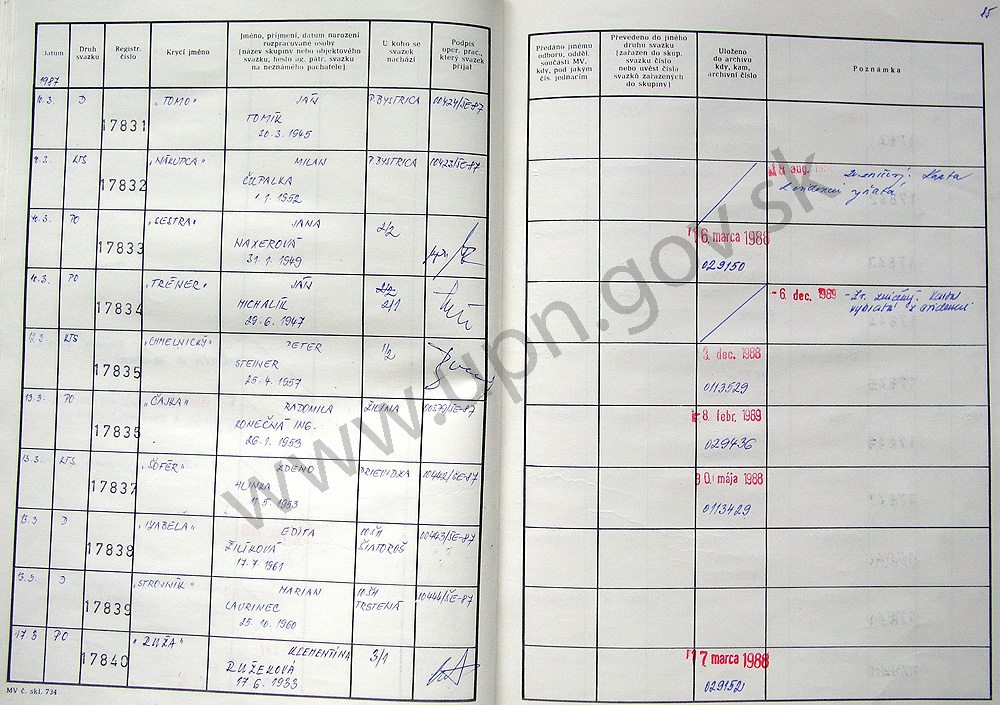 25
Datum
Druh svazku
Registr. číslo
Krycí jméno
Jméno, příjmení, datum narození
rozpracované osoby
(název skupiny nebo objektového
svazku, heslo ag. pátr. svazku
na neznámého pachatele)
U koho se
svazek
nachází
Podpis
oper. prac.,
který svazek
přijal
Předáno jinému
odboru, odděl.
součásti MV,
kdy, pod jakým
čís. jednacím
Převedeno do jiného
druhu svazku
(zařazen do skup.
svazku číslo
nebo uvést čísla
svazků zařazených
do skupiny)
Uloženo
do archivu
kdy, kam,
archivní číslo
Poznámka
1987
10.3. D 17831 "TOMO" JÁN P.BYSTRICA 00424/ŠE-87
TOMÍK
20.3.1945
LTS 17832 "NÁKUPCA" MILAN P.BYSTRICA 10423/ŠE-87
1952
aug.
PO 17833 "SESTRA" JANA 2/2
NAXEROVÁ
31.1.1949
16. marca 1988
029150
10.3. PO 17834 "TRÉNER" JÁN 2/1
MICHALÍK
29.6.1947
- 6. dec. 1989
LTS 17835 "CHMELNICKÝ" PETER 1/2
STEINER
25.4.1957
dec. 1988
0113529
13.3. PO 17836 "ČAJKA" RADOMILA ŽILINA
KONEČNÁ ING.
26.1.1953
8. febr. 1989
029436
13.3. LTS 17837 "ŠOFÉR" ZDENO PRIEVIDZA 10442/ŠE-87
HLINKA
5.1953
30. mája 1988
0113429
13.3. D 17838 "IZABELA" EDITA 10.ŠH 00443/ŠE-87
ŽILÍKOVÁ ŠIATOROŠ
17.7.1961
13.3. D 17839 "STROJNÍK" MARIAN 10.ŠH 10444/ŠE-87
LAURINEC TRSTENÁ
25.10.1960
17.3. PO 17840 "RUŽA" KLEMENTÍNA 3/1
RUŽEKOVÁ
17.6.1933
17 marca 1988
029152
MV č. skl. 734
www.upn.gov.sk